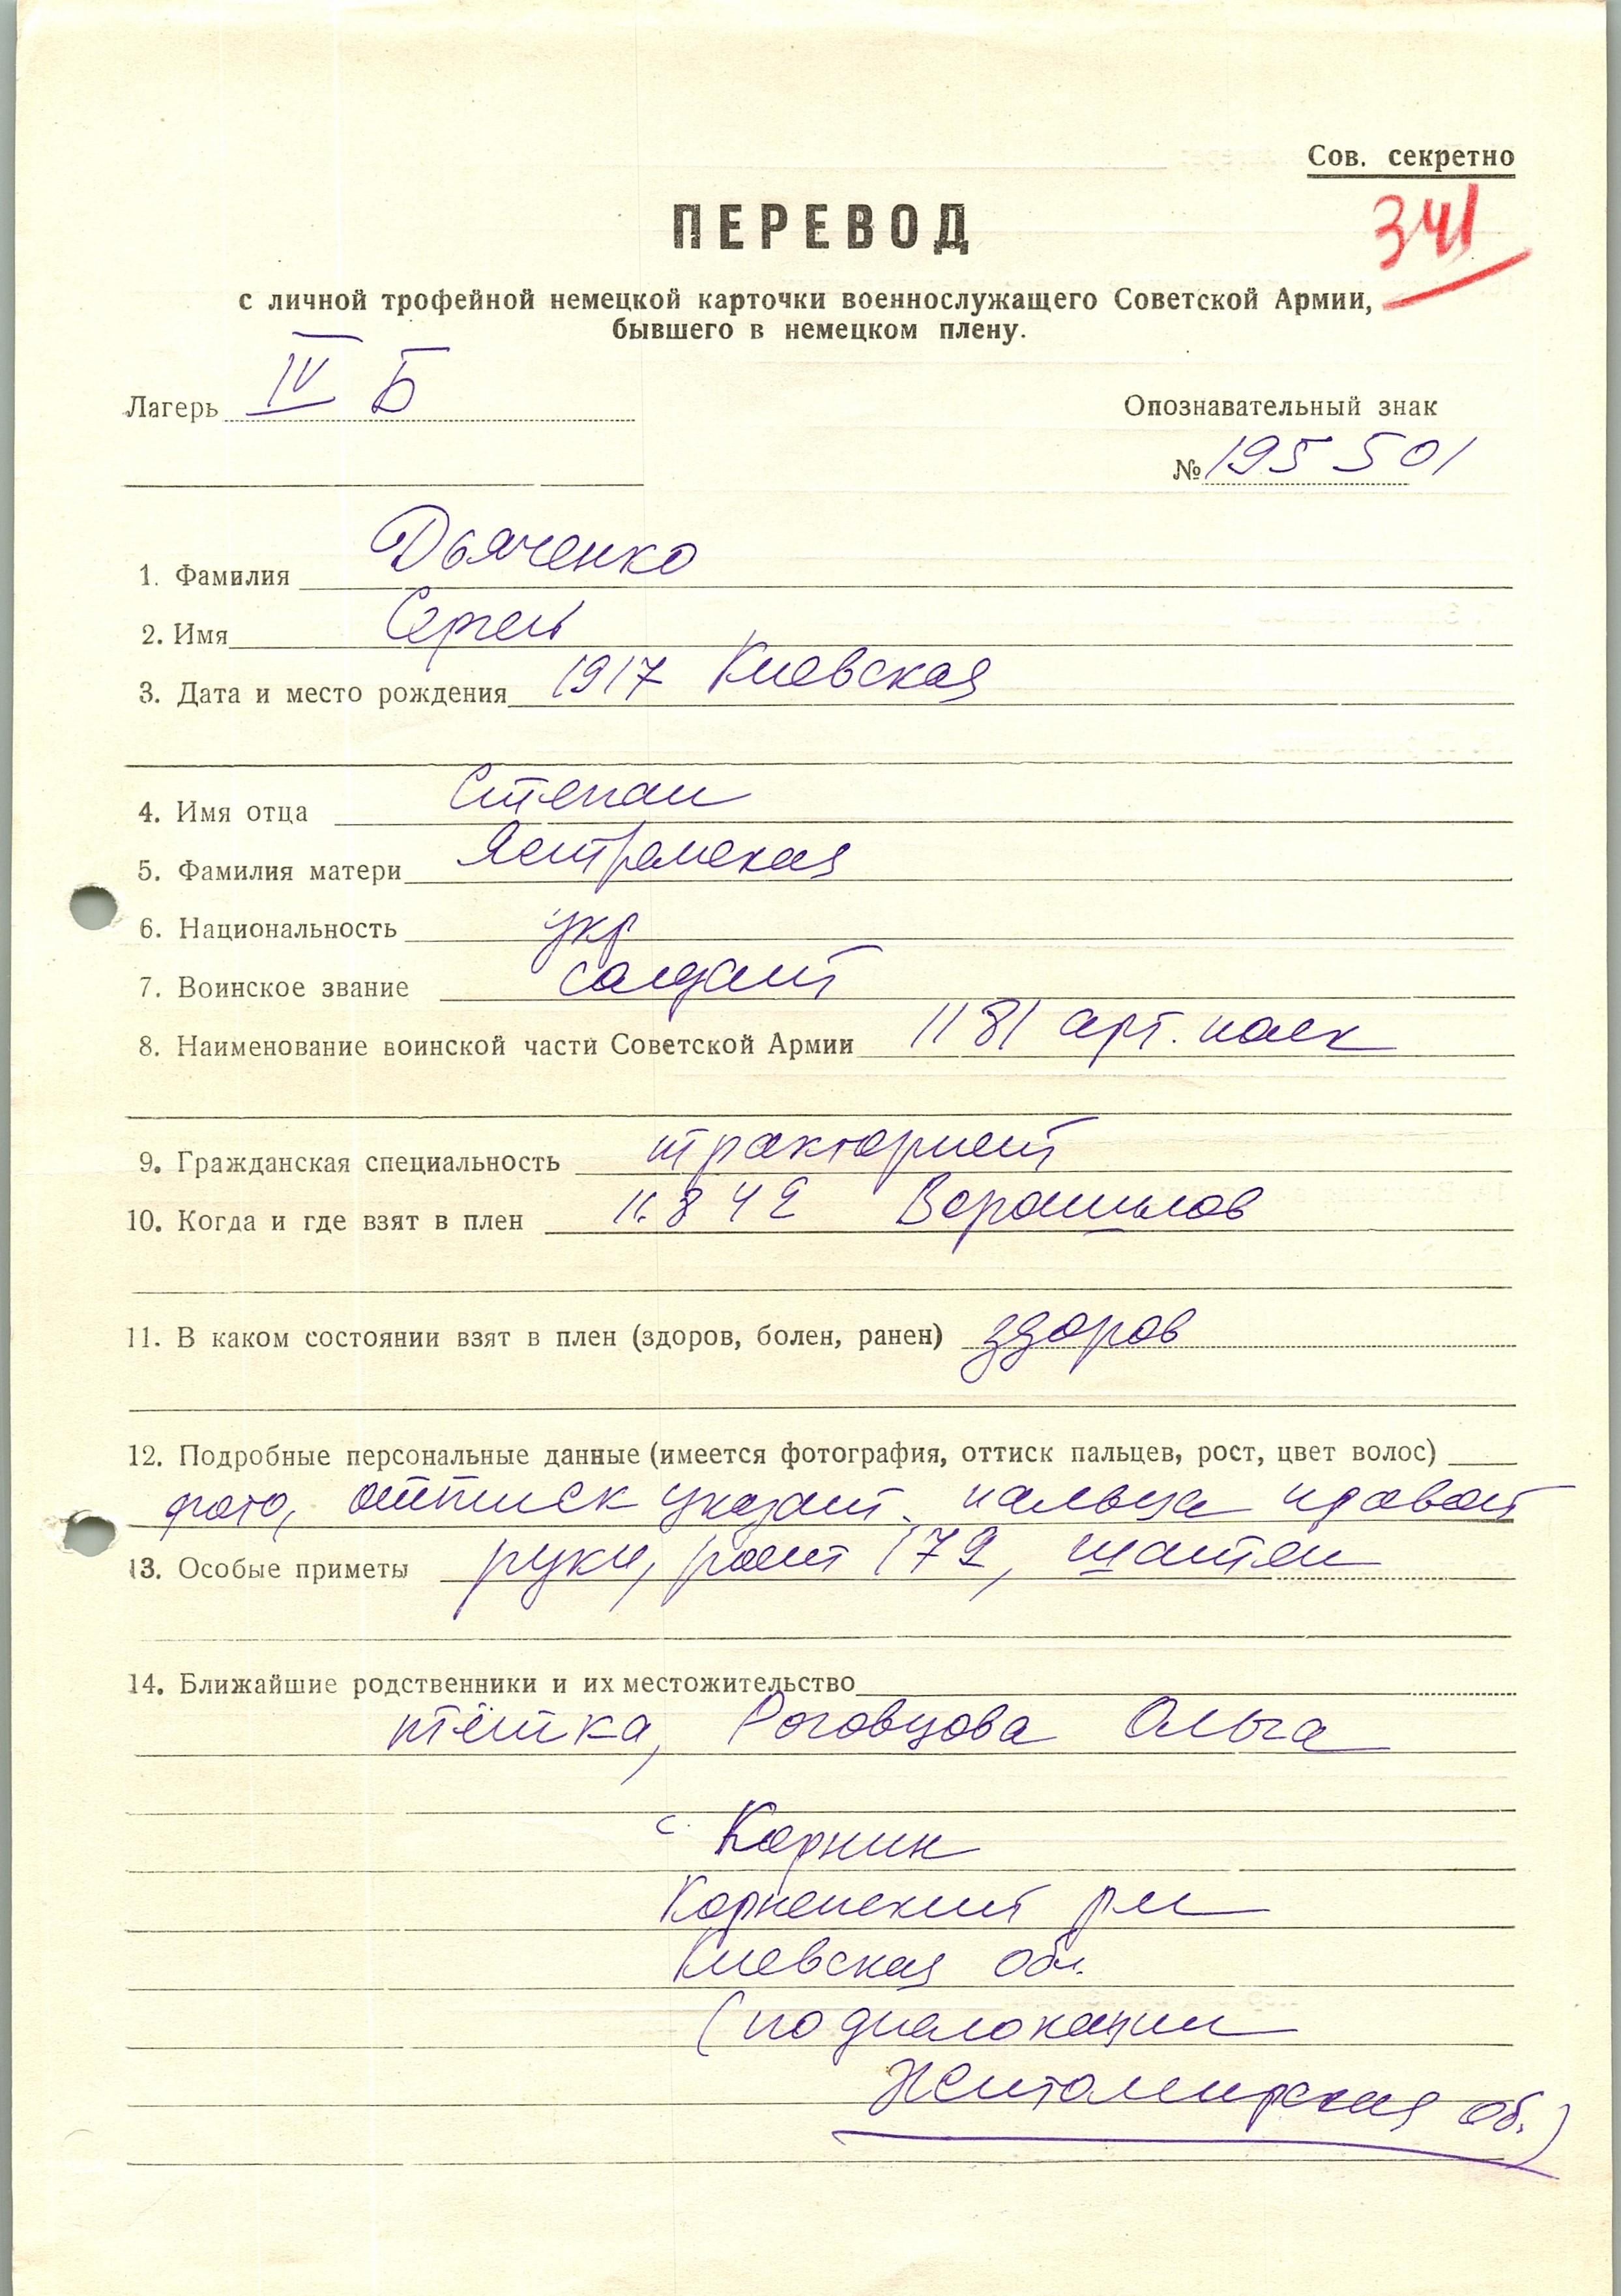 Сов. секретно
341
ПЕРЕВОД
с личной трофейной немецкой карточки военнослужащего Советской Армии,
бывшего в немецком плену.
Лагерь IV Б
Опознавательный знак
№ 195501
1. Фамилия Дьяченко
2. Имя Сергей
3. Дата и место рождения 1917 Киевская
4. Имя отца Степан
5. Фамилия матери
6. Национальность укр
7. Воинское звание солдат
8. Наименование воинской части Советской Армии 1181 арт. полк
9. Гражданская специальность тракторист
10. Когда и где взят в плен 11.8 42 Ворошилов
11. В каком состоянии взят в плен (здоров, болен, ранен) здоров
12. Подробные персональные данные (имеется фотография, оттиск пальцев, рост, цвет волос)
фото, оттиск указат. пальца правой
13. Особые приметы руки, рост 172, шатен
14. Ближайшие родственники и их местожительство
тётка, Роговцова Ольга
с. Корнин
Корненский р-н
Киевская обл.
(по дислокации
Житомирская об.)